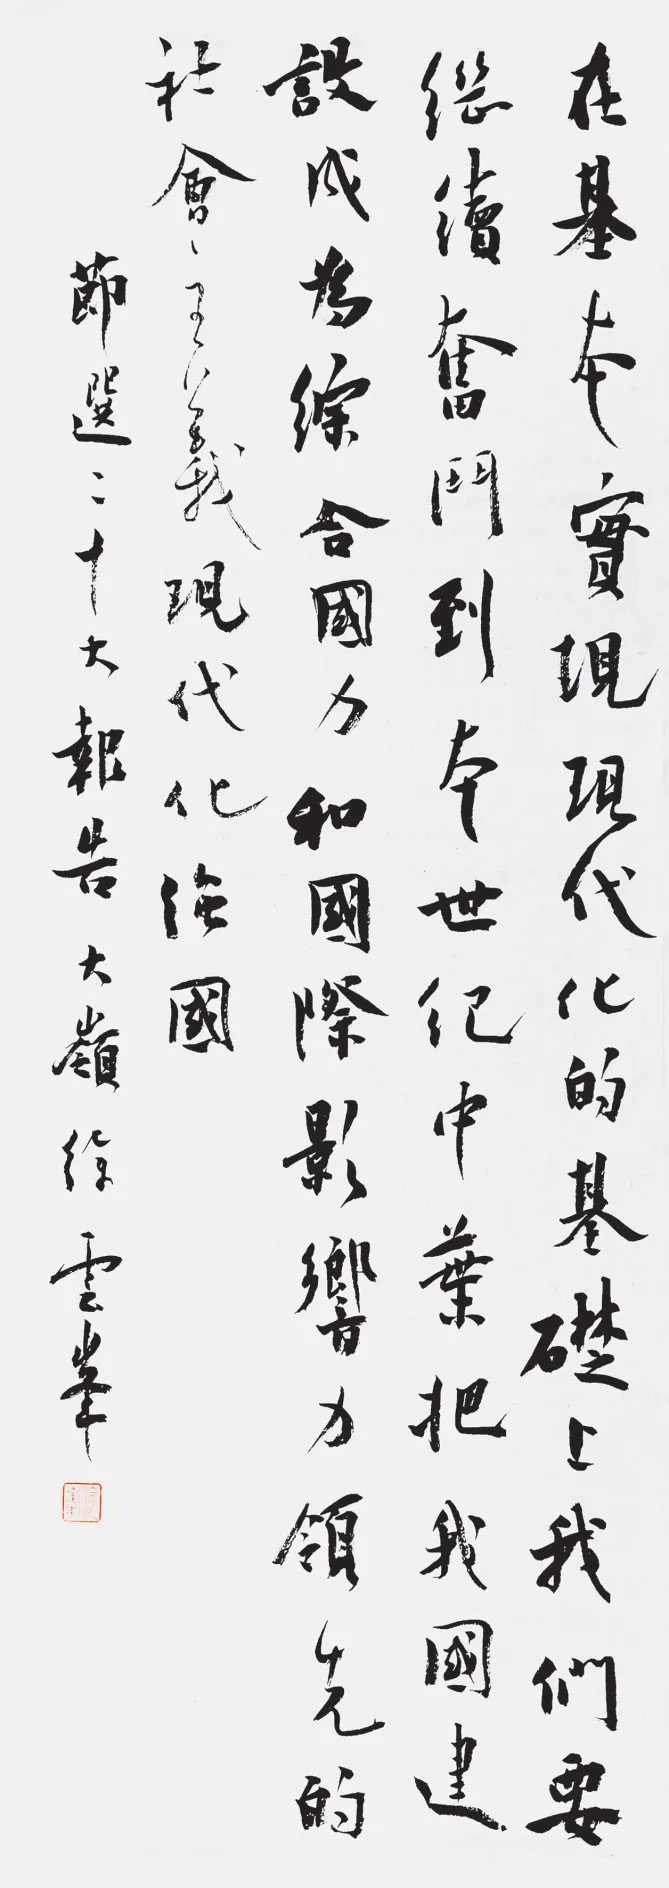 在基本實現現代化的基礎上我們要
繼續奮鬥到本世紀中葉把我國建
設成為綜合國力和國際影響力領先的
社會主義現代化強國
節選二十大報告 大嶺 徐雲峯